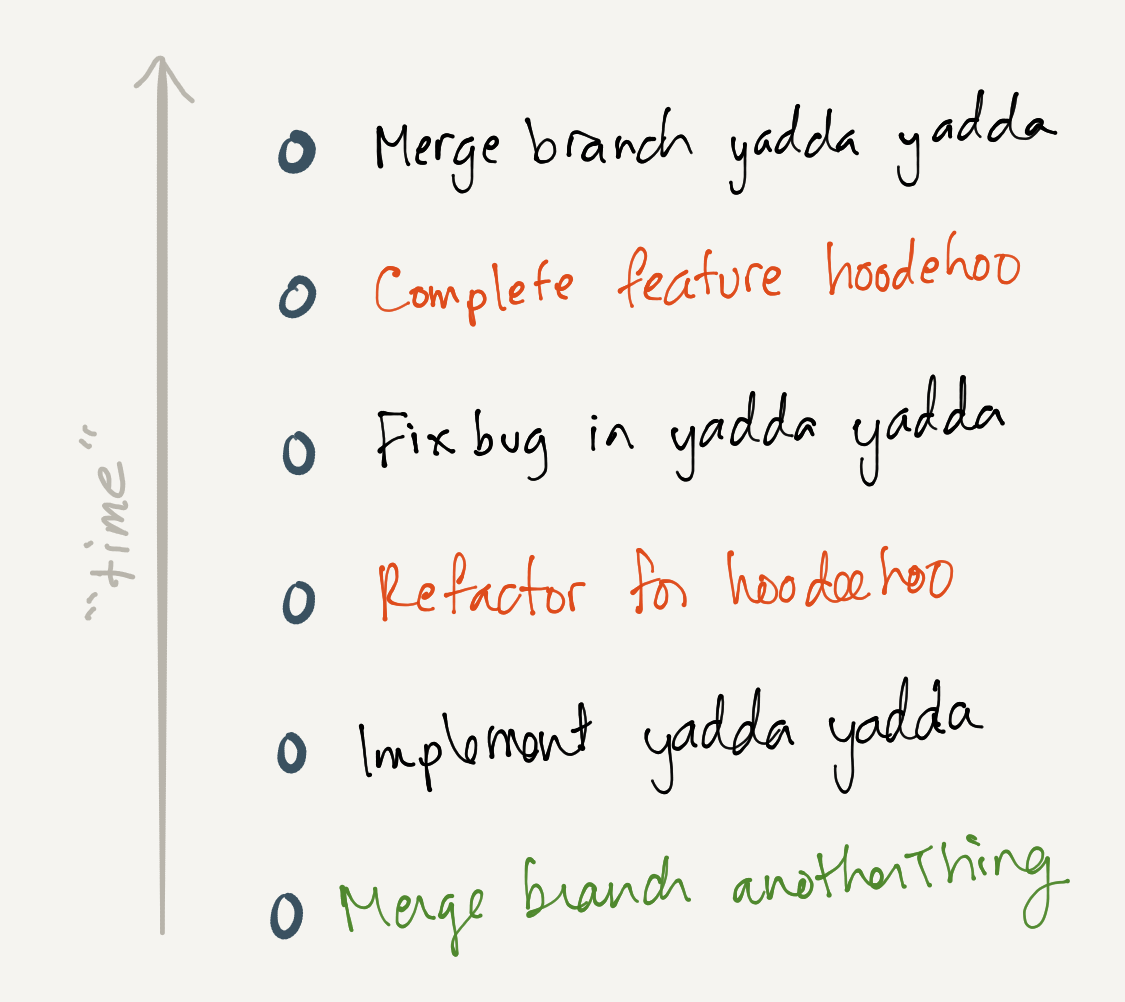 Merge branch yadda yadda
Complete feature hoodehoo
Fix bug in yadda yadda
Refactor for hoodeehoo
Implement yadda yadda
Merge branch anotherThing
"time"